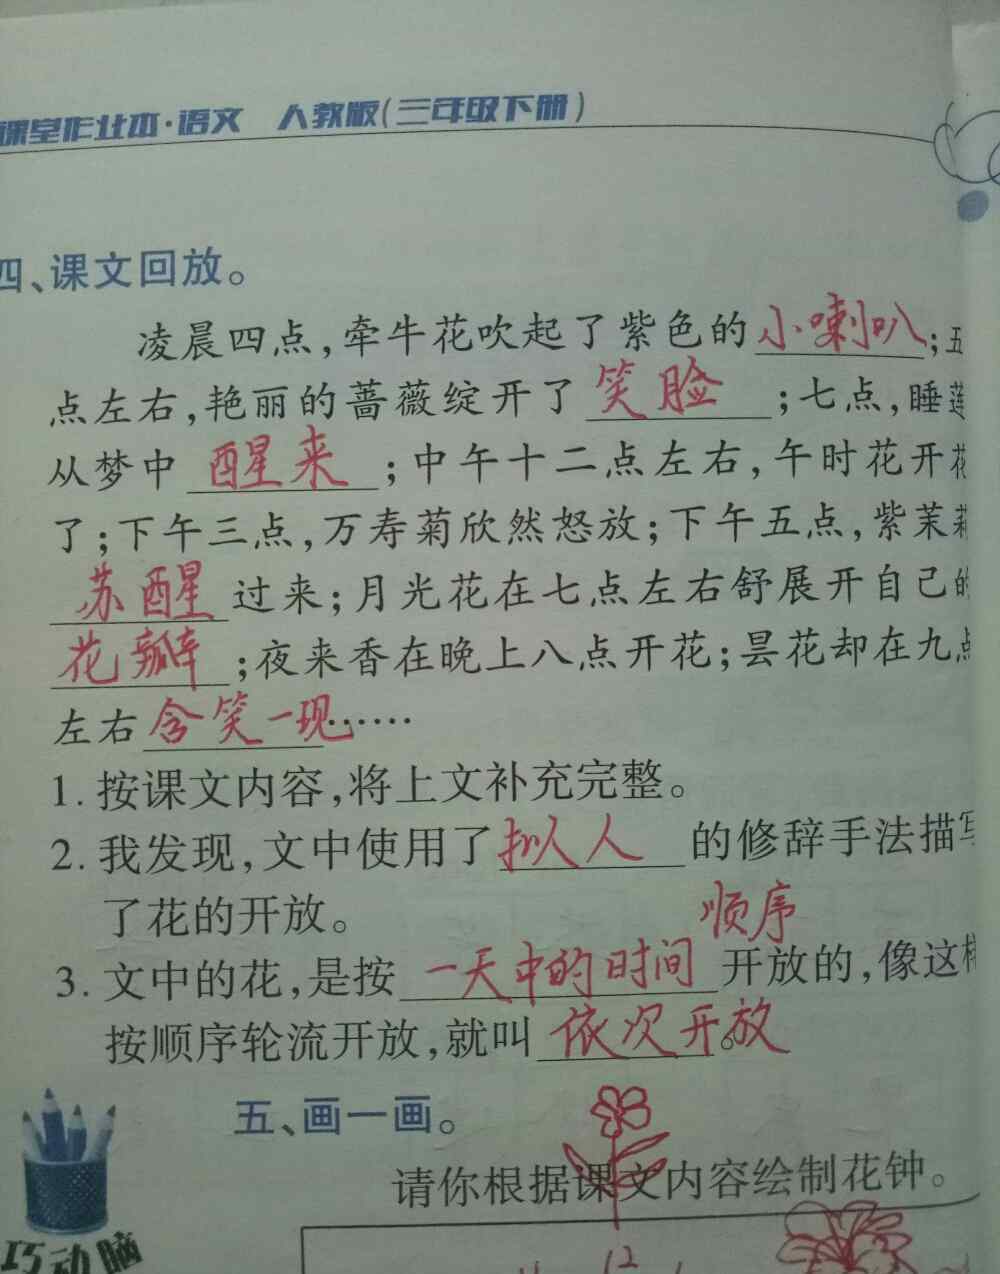 课堂作业本·语文 人教版(三年级下册)
四、课文回放。
凌晨四点,牵牛花吹起了紫色的小喇叭;五
点左右,艳丽的蔷薇绽开了笑脸;七点,睡莲
从梦中醒来;中午十二点左右,午时花开花
了;下午三点,万寿菊欣然怒放;下午五点,紫茉莉
苏醒过来;月光花在七点左右舒展开自己的
花瓣;夜来香在晚上八点开花;昙花却在九点
左右含笑一现……
1. 按课文内容,将上文补充完整。
2. 我发现,文中使用了拟人的修辞手法描写
了花的开放。
顺序
3. 文中的花,是按一天中的时间开放的,像这样
按顺序轮流开放,就叫依次开放。
五、画一画。
请你根据课文内容绘制花钟。
巧动脑
12